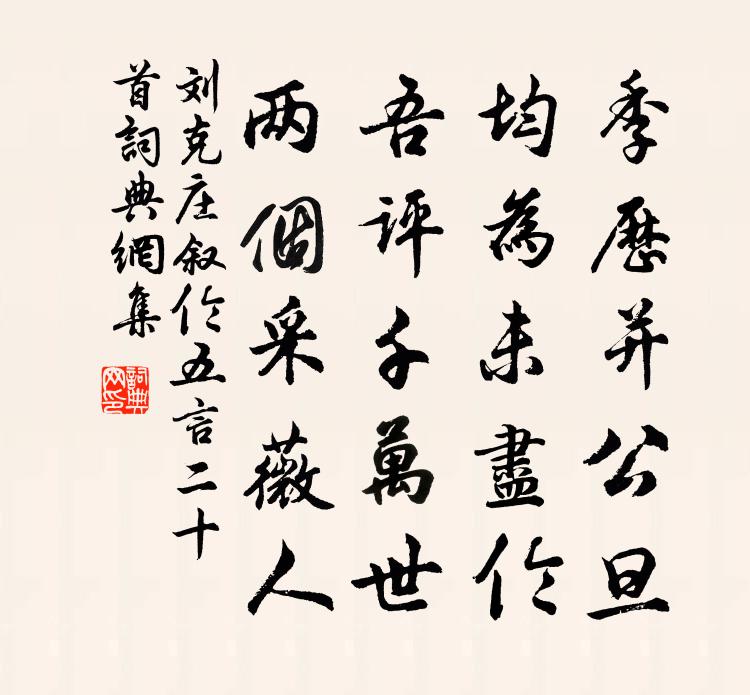 季歷并公旦
均為未盡伦
吾評千萬世
两個采薇人
刘克庄叙伦五言二十
首詞典網集
詞典
网印